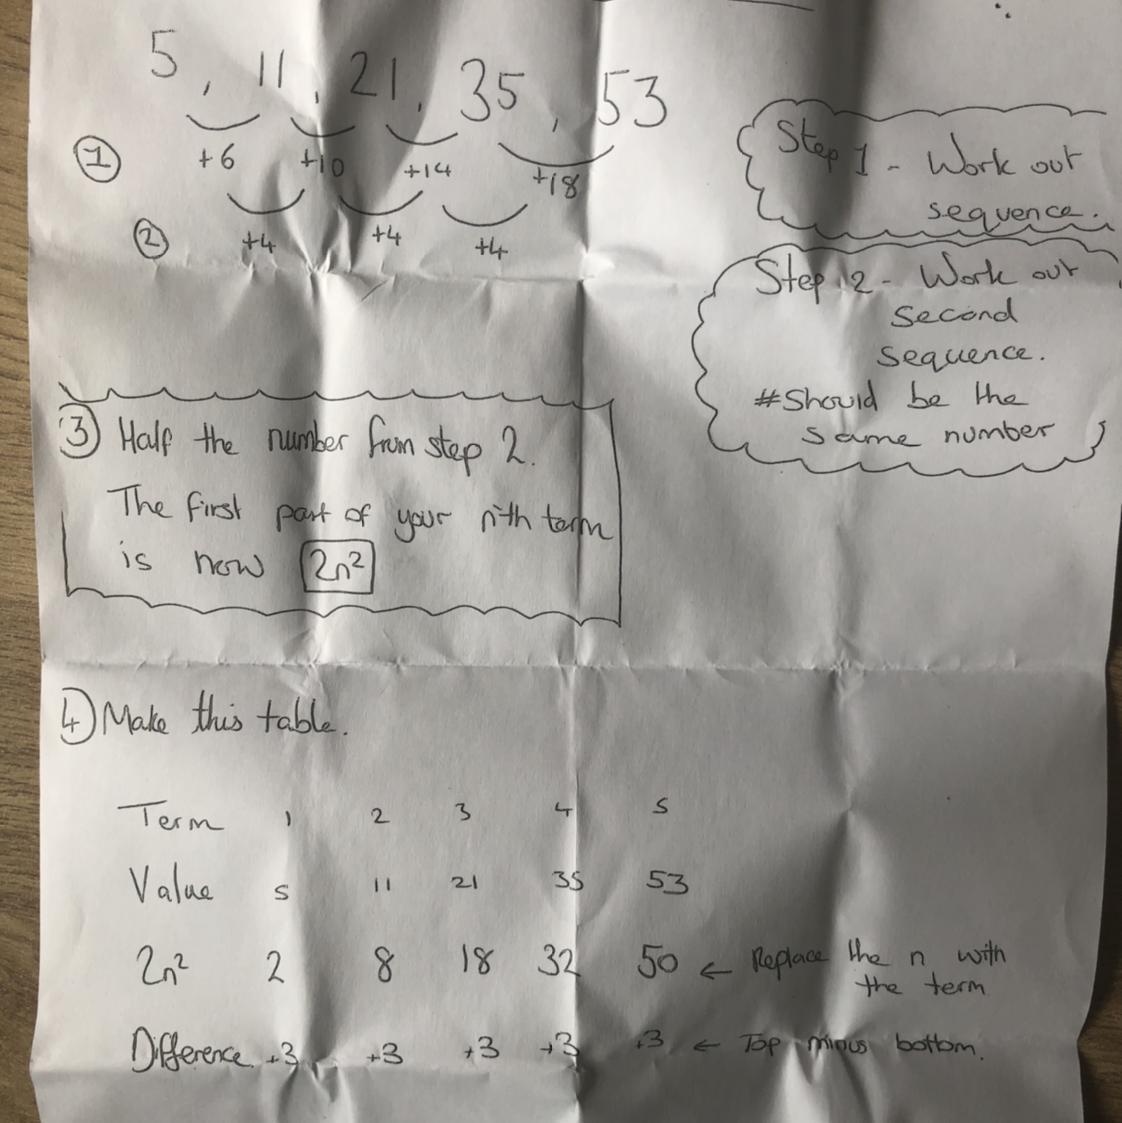 5, 11, 21, 35, 53
① +6 +10 +14 +18
② +4 +4 +4
Step 1 - Work out
sequence.
Step 2 - Work out
second
sequence.
#Should be the
same number
③ Half the number from step 2.
The first part of your n'th term
is now 2n²
④ Make this table.
Term 1 2 3 4 5
Value 5 11 21 35 53
2n² 2 8 18 32 50 ← Replace the n with
the term
Difference +3 +3 +3 +3 +3 ← Top minus bottom.